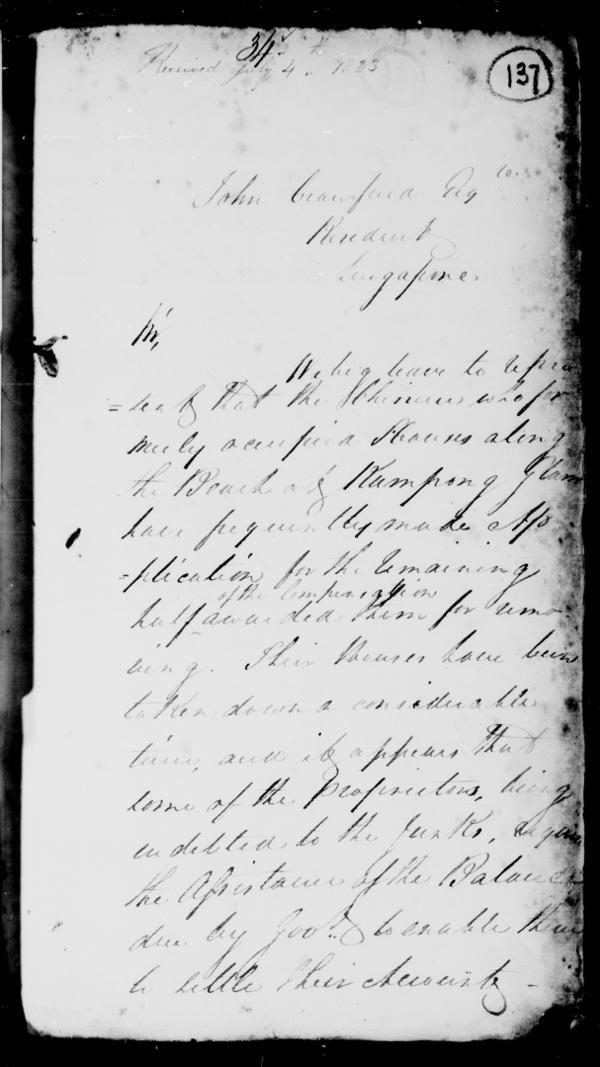 34
Received July 4th 1823
137
John Crawfurd Esqre
Resident
Singapore
Sir,
We beg leave to repre
=sent that the Chinese who for
merly occupied Houses along
the Beach at Kampong Glam
have frequently made Ap
=plication for the remaining
of the Compensation
half awarded them for remo
ving. Their Houses have been
taken down a considerable
time, and it appears that
some of the Proprietors, being
indebted to the Junks, require
the Assistance of the Balance
due by Govt. to enable them
to settle their Accounts -